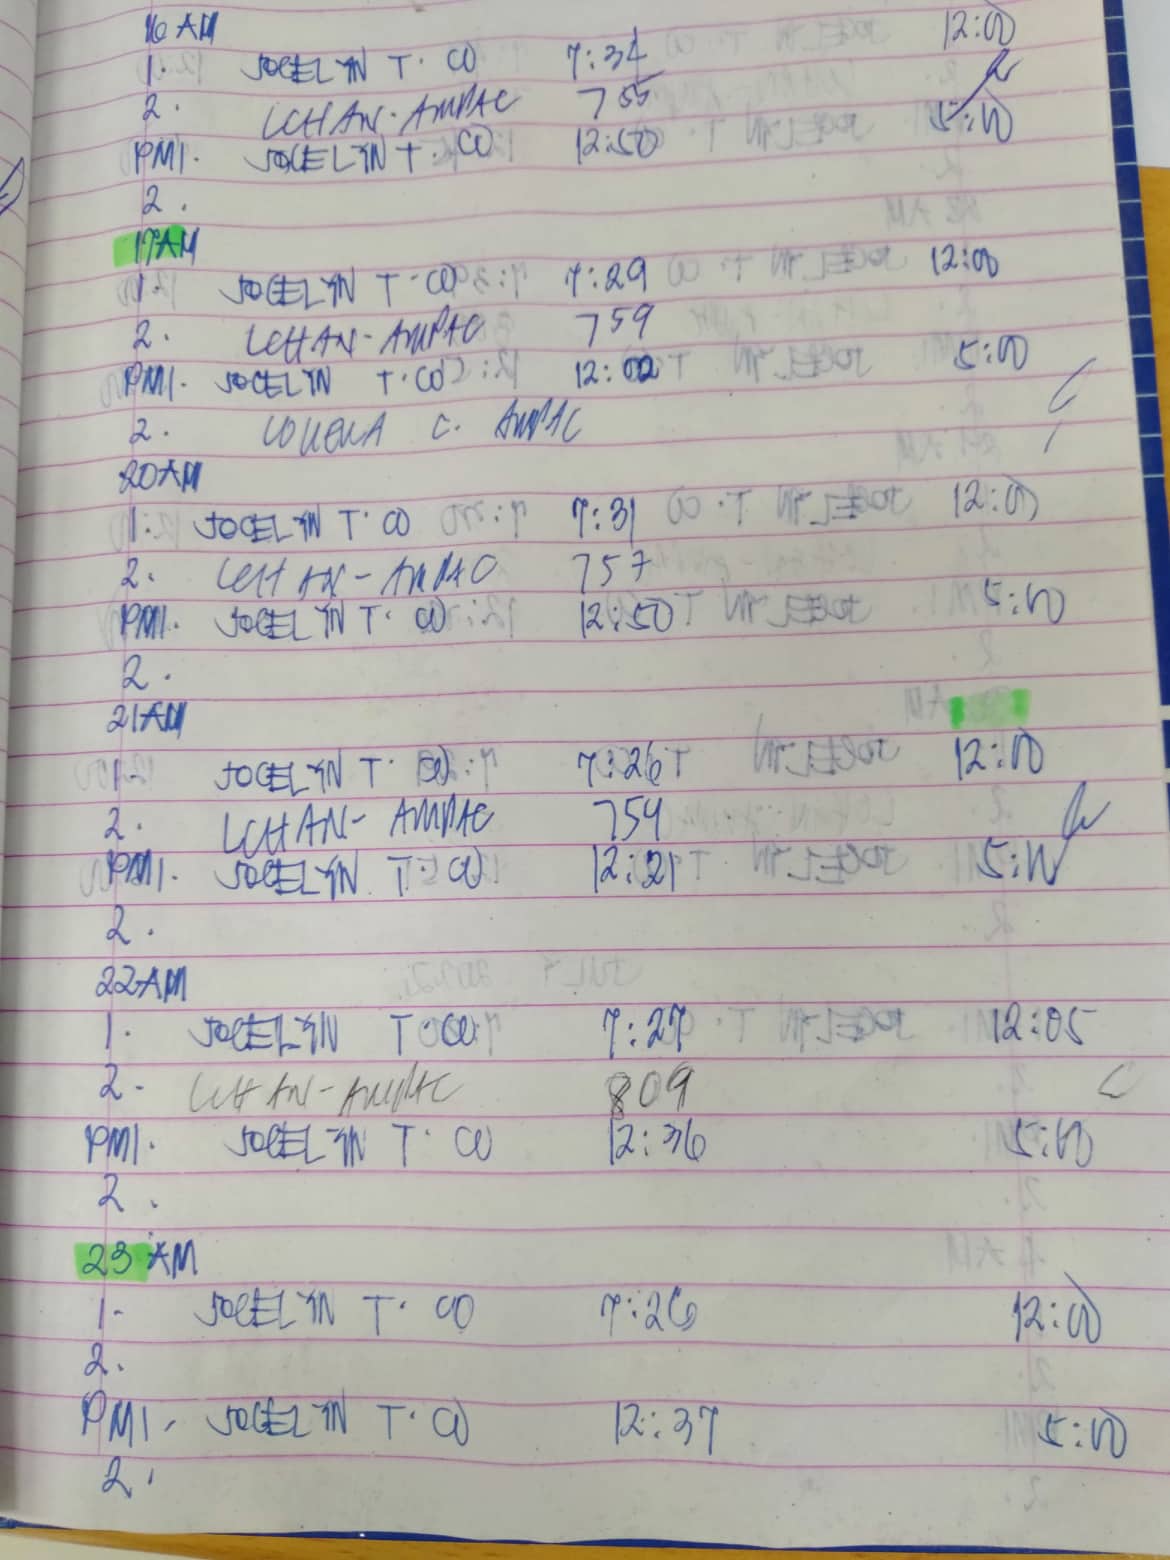 16 AM 12:00
1. JOCELYN T. CO 7:34
2. LCHAN-AMPAC 755
PM1. JOCELYN T. CO 12:50 5:00
2.
17 AM
1. JOCELYN T. CO 7:29 12:00
2. LCHAN-AMPAC 759
PM1. JOCELYN T. CO 12:02 5:00
2. C. AMPAC
20 AM
1. JOCELYN T. CO 7:31 12:00
2. LCHAN-AMPAC 757
PM1. JOCELYN T. CO 12:50 5:00
2.
21 AM
1. JOCELYN T. CO 7:26 12:00
2. LCHAN-AMPAC 759
PM1. JOCELYN T. CO 12:21 5:00
2.
22 AM
1. JOCELYN T. CO 7:27 12:05
2- LCHAN-AMPAC 809
PM1. JOCELYN T. CO 12:36 5:00
2.
23 AM
1- JOCELYN T. CO 7:26 12:00
2.
PM1- JOCELYN T. CO 12:37 5:00
2.